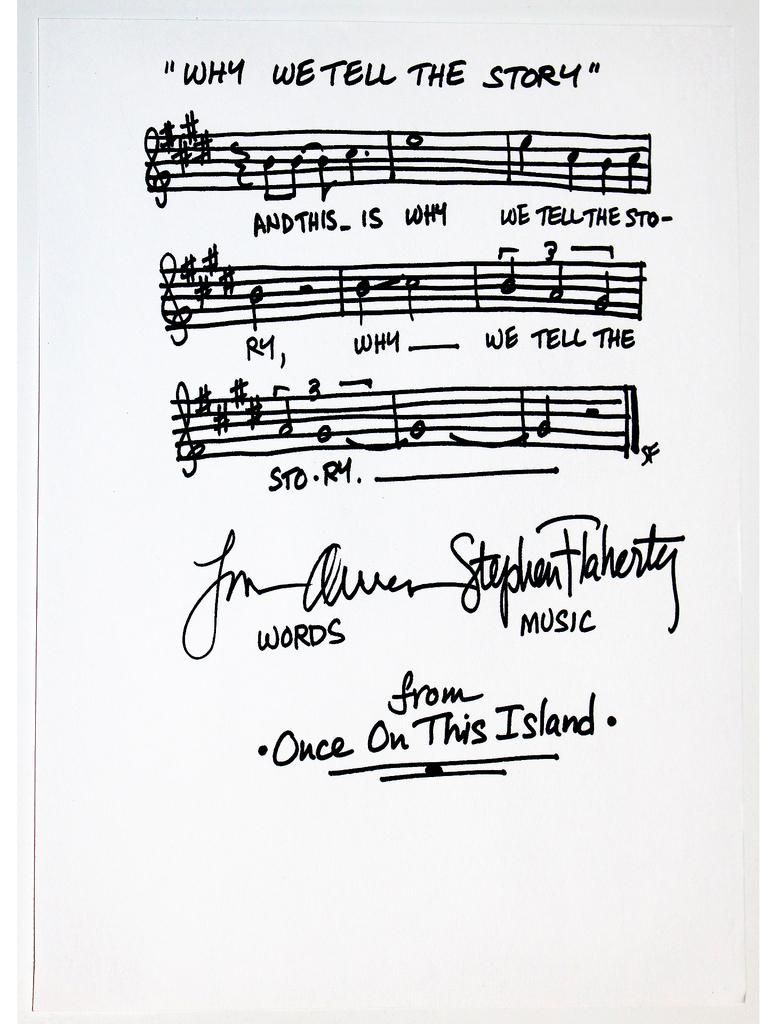 "WHY WE TELL THE STORY"
AND THIS_ IS WHY WE TELL THE STO-
3
RY, WHY ___ WE TELL THE
3
STO·RY. ___________
Stephen Flaherty
WORDS MUSIC
from
• Once On This Island •